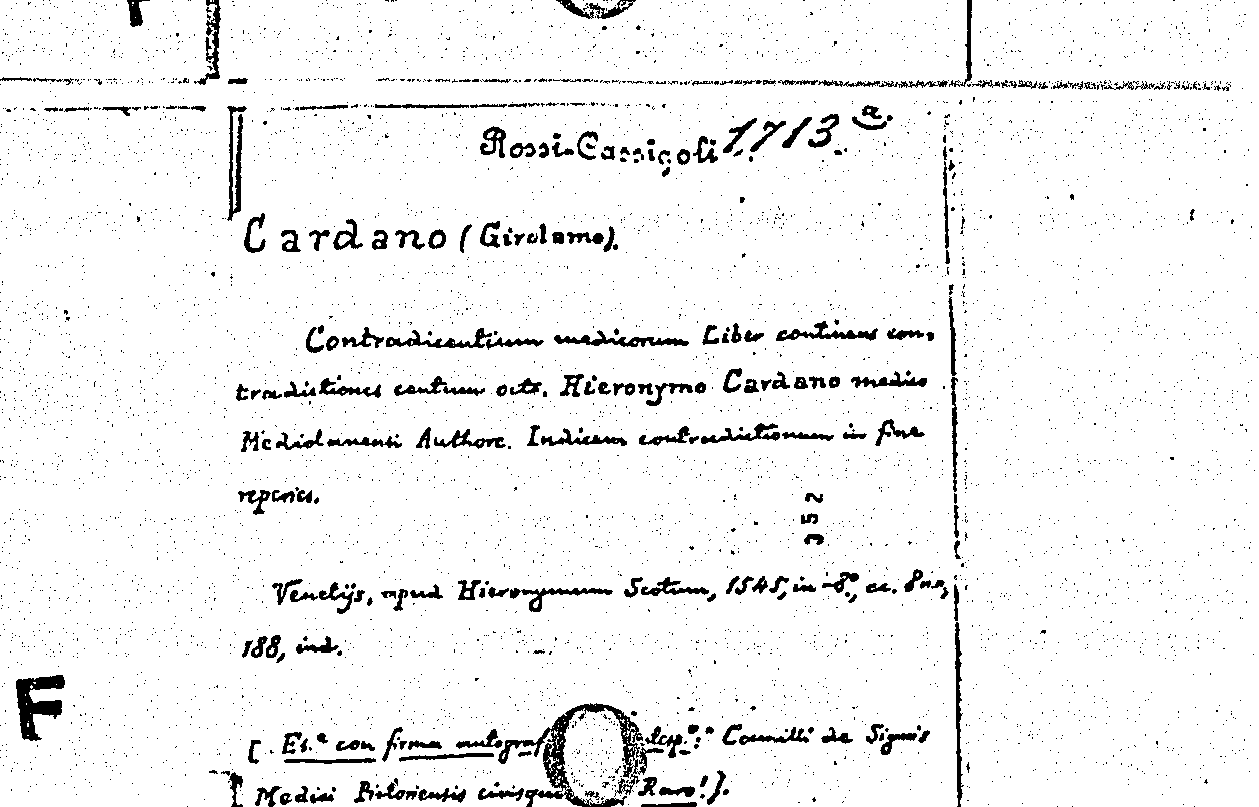 Rossi-Cassigoli 1713 a.
Cardano (Girolamo).
Contradicentium medicorum Liber continens con-
tradictiones centum octo. Hieronymo Cardano medico
Mediolanensi Authore. Indicem contradictionum in fine
reperies.
352
Venetijs, apud Hieronymum Scotum, 1545, in-8º, cc. 8nn,
188, ind.
F
[. Es.e con firma autograf : " Camilli de Signis
Medici Pistoriensis civisque Raro! ].